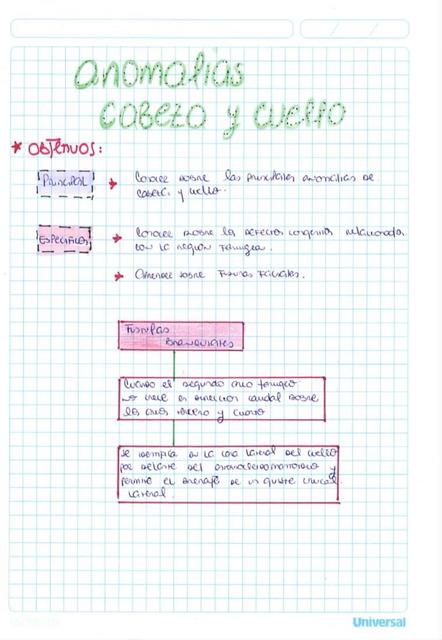 anomalias
cabeza y cuello
* OBJETIVOS:
PRINCIPAL
Conocer sobre las principales anomalías de
cabeza y cuello.
ESPECÍFICOS
Conocer sobre los defectos congenitos relacionados
con la region faringea.
sobre Fisuras Faciales.
Fistulas
Branquiales
Cuando el segundo arco faringeo
no crece en direccion caudal sobre
los arcos tercero y cuarto
Se identifica en la cara lateral del cuello
por delante del esternocleidomastoideo y
permite el drenaje de un quiste cervical
lateral.
Universal